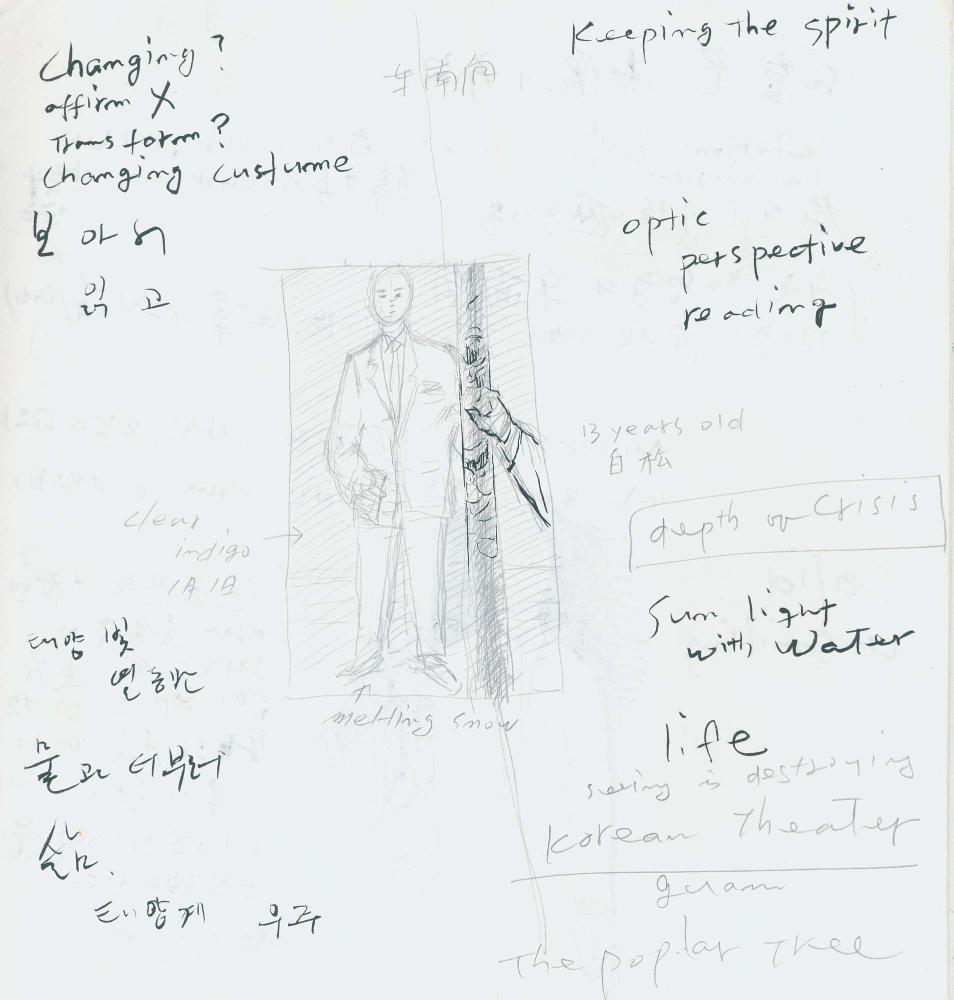 Keeping the spirit
Changing?
affirm X
Transform?
Changing custume
東南向
보아서
읽고
optic
perspective
reading
13 years old
白松
depth of Crisis
clear
indigo
1月1日
Sun light
with water
태양 빛
열
melting snow
물과 더부러
life
seeing is destroying
Korean Theater
삶.
태양계 우주
The poplar Tree